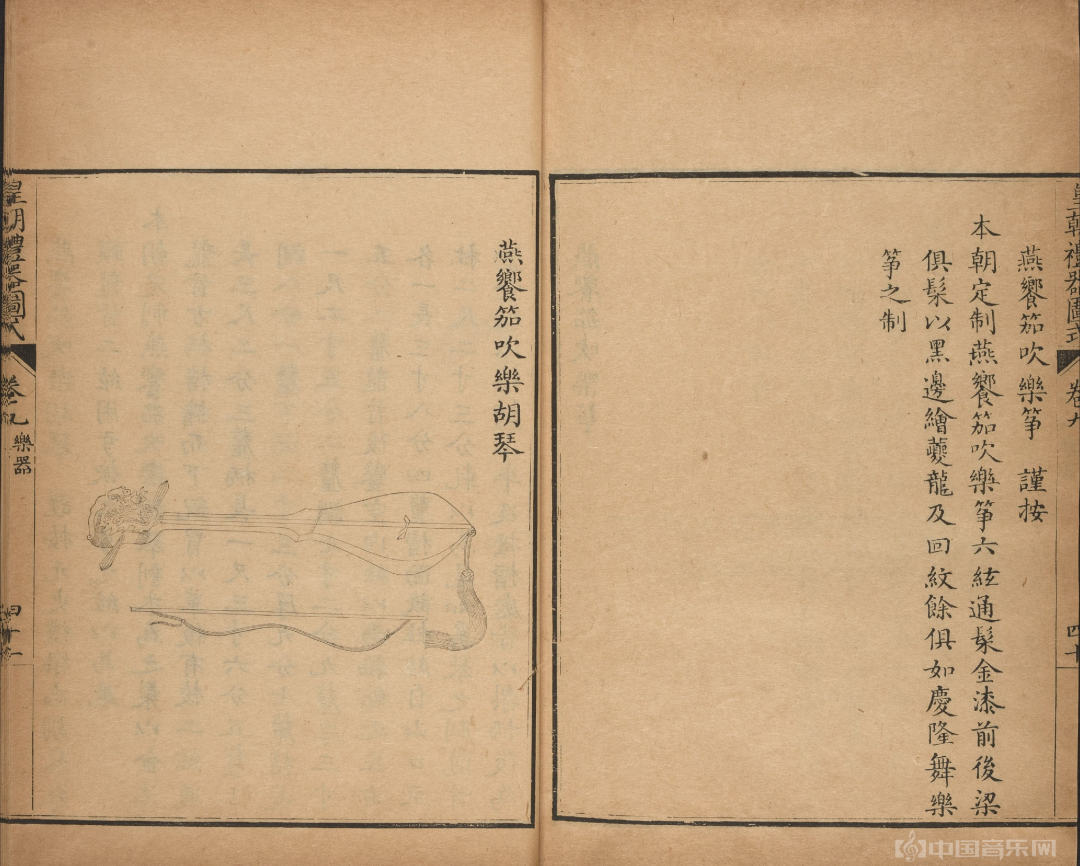 皇朝禮器圖式 卷九
四十
燕饗笳吹樂箏 謹按
本朝定制燕饗笳吹樂箏六絃通髹金漆前後梁
俱髹以黑邊繪夔龍及回紋餘俱如慶隆舞樂
箏之制
燕饗笳吹樂胡琴
皇朝禮器圖式 卷九 樂器
四十一
中国音乐网